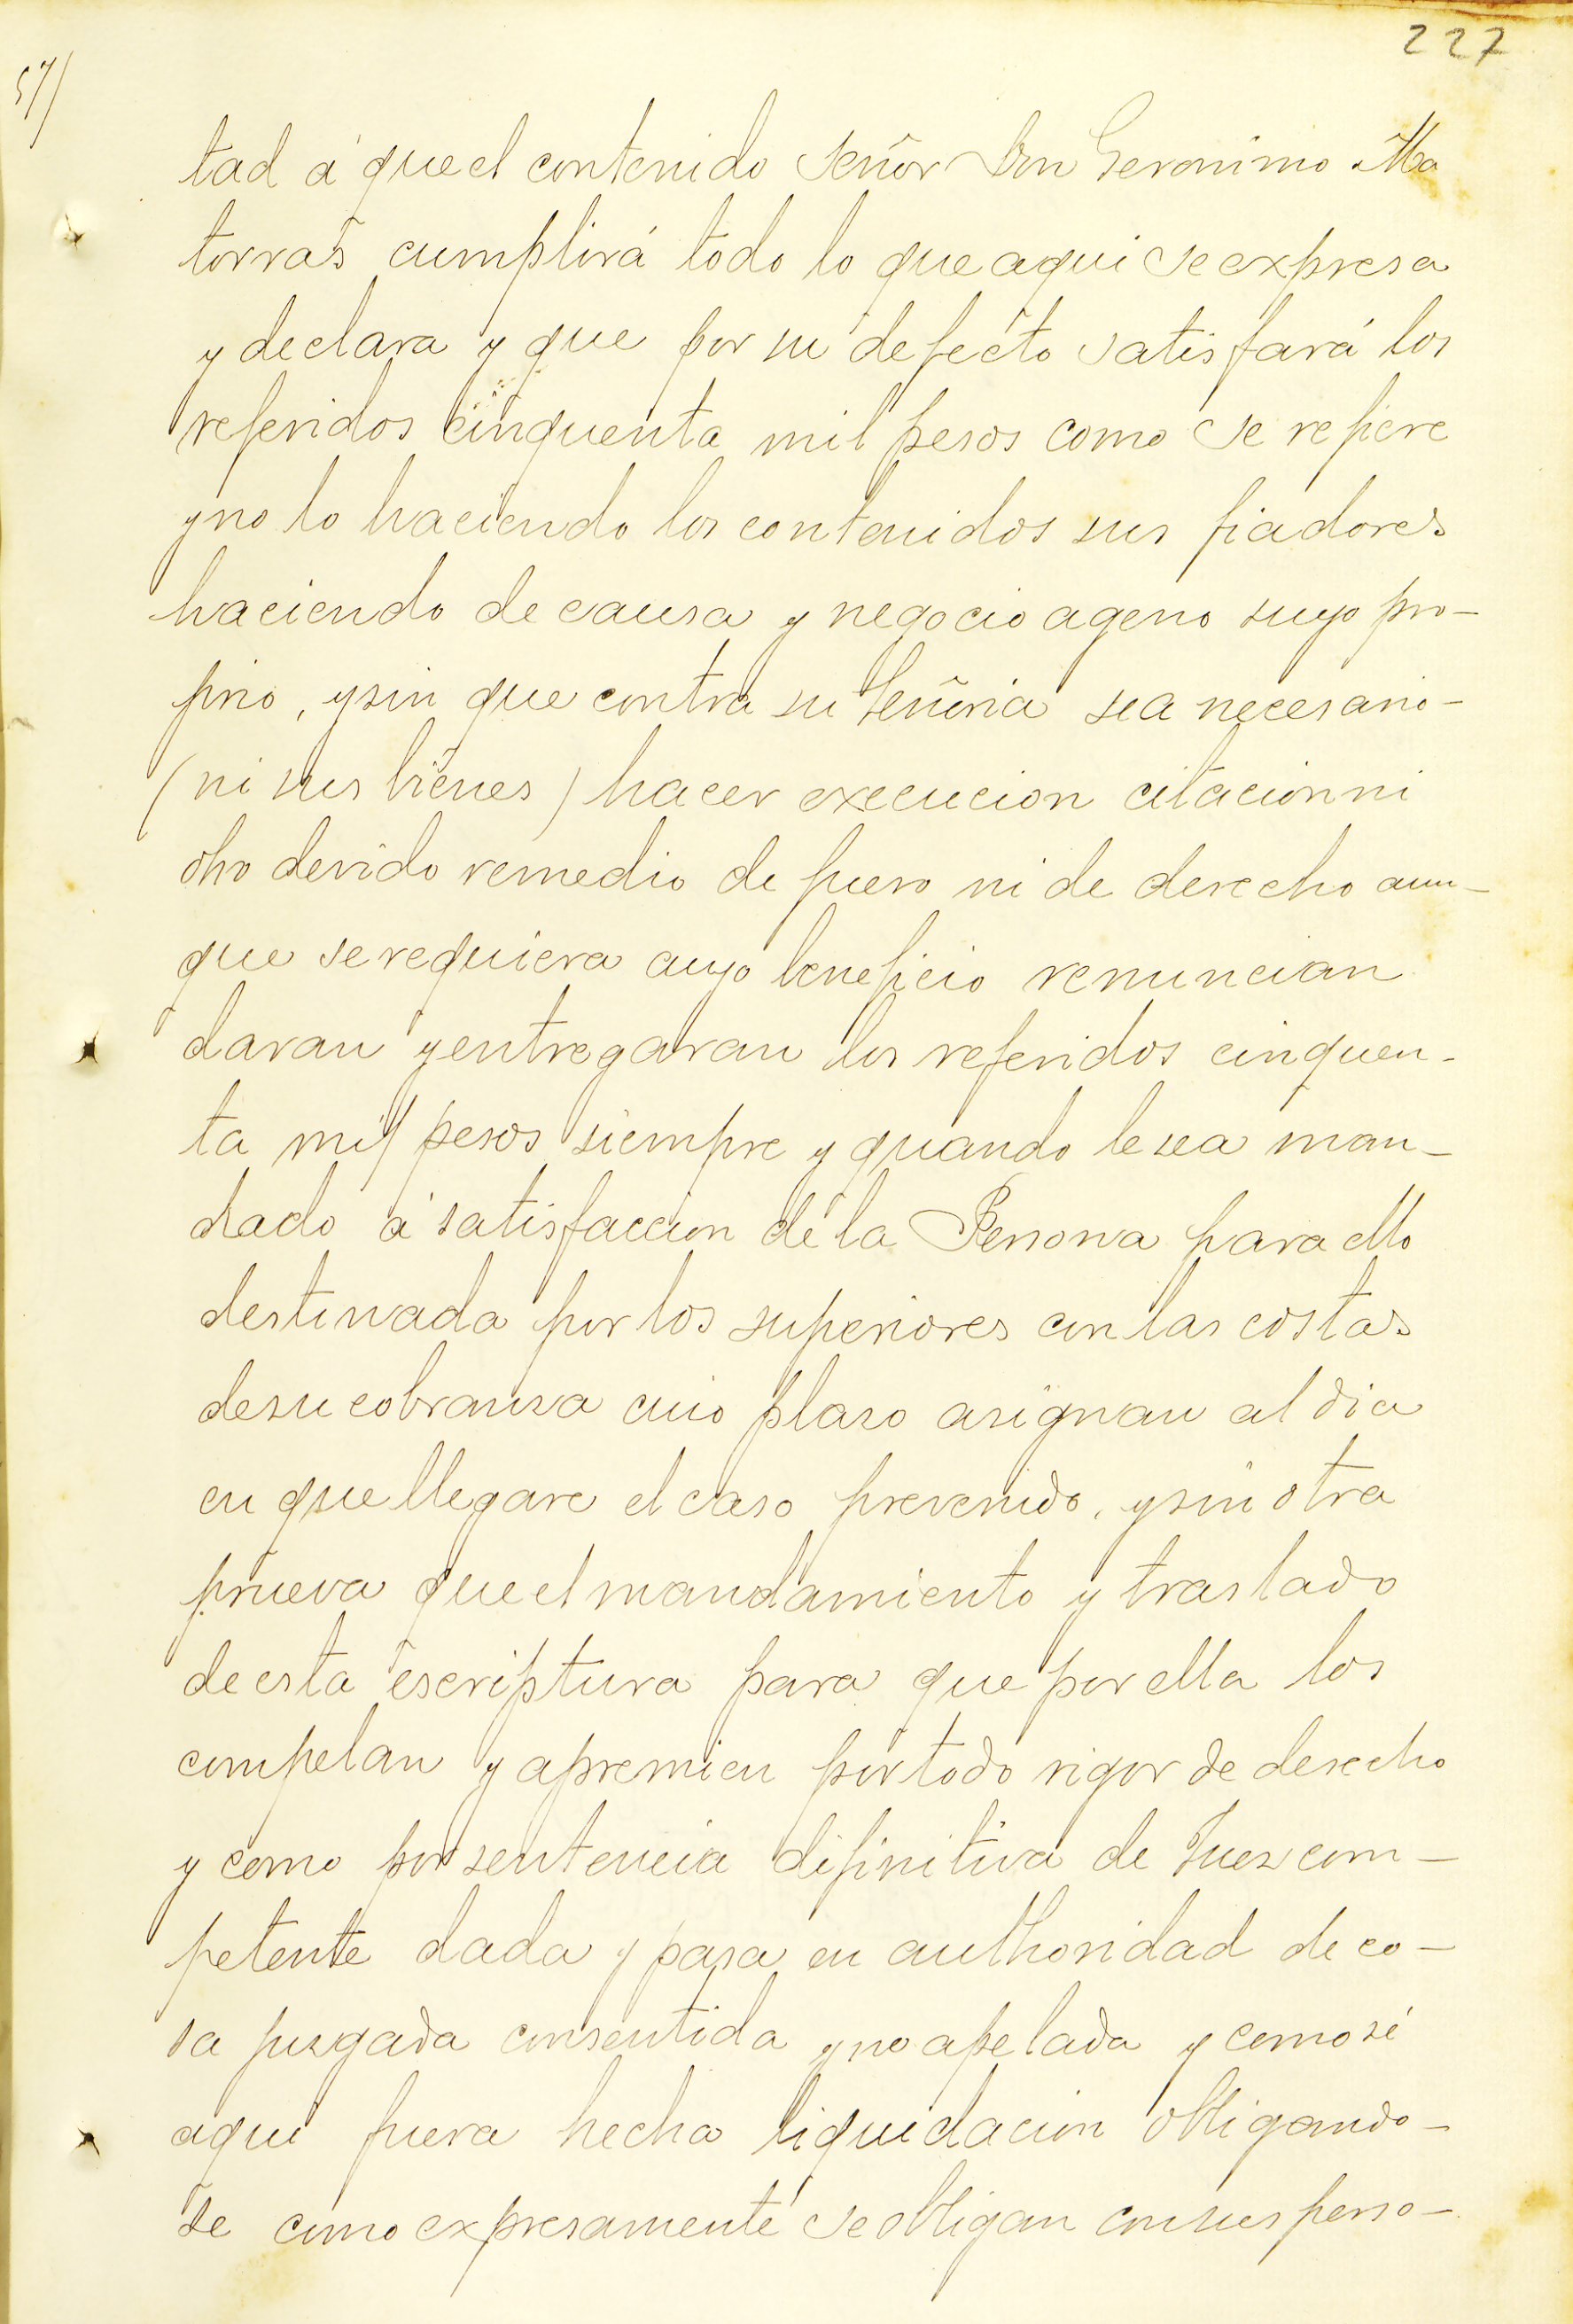 227
57/
tad á que el contenido Señor Don Geronimo Ma
torras cumplirá todo lo que aqui se expresa
y declara y que por su defecto satisfará los
referidos cinquenta mil pesos como se refiere
y no lo haciendo los contenidos sus fiadores
haciendo de causa y negocio ageno suyo pro-
prio, y sin que contra su Señoria sea necesario-
(ni sus bienes) hacer execucion citacion ni
otro devido remedio de fuero ni de derecho aun-
que se requiera cuyo beneficio renuncian
daran y entregaran los referidos cinquen-
ta mil pesos siempre y quando le sea man-
dado á satisfaccion de la Persona para ello
destinada por los superiores con las costas
de su cobransa cuio plaso asignan al dia
en que llegare el caso prevenido, y sin otra
prueva que el mandamiento y traslado
de esta escriptura para que por ella los
compelan y apremien por todo rigor de derecho
y como por sentencia difinitiva de Juez com-
petente dada y pasa en authoridad de co-
sa jusgada consentida y no apelada y como si
aqui fuera hecha liquidacion obligando-
se como expresamente se obligan con sus perso-